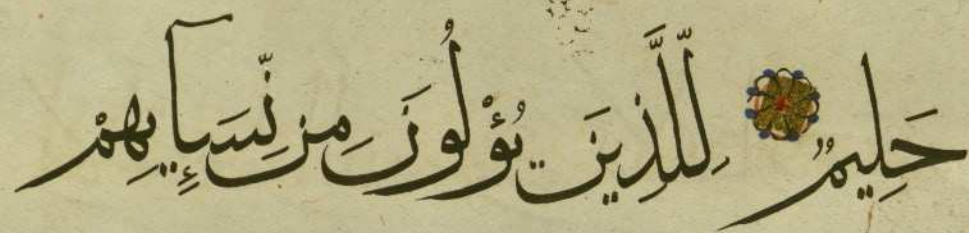 حَلِيمٌ لِّلَّذِينَ يُؤْلُونَ مِن نِّسَآئِهِمْ